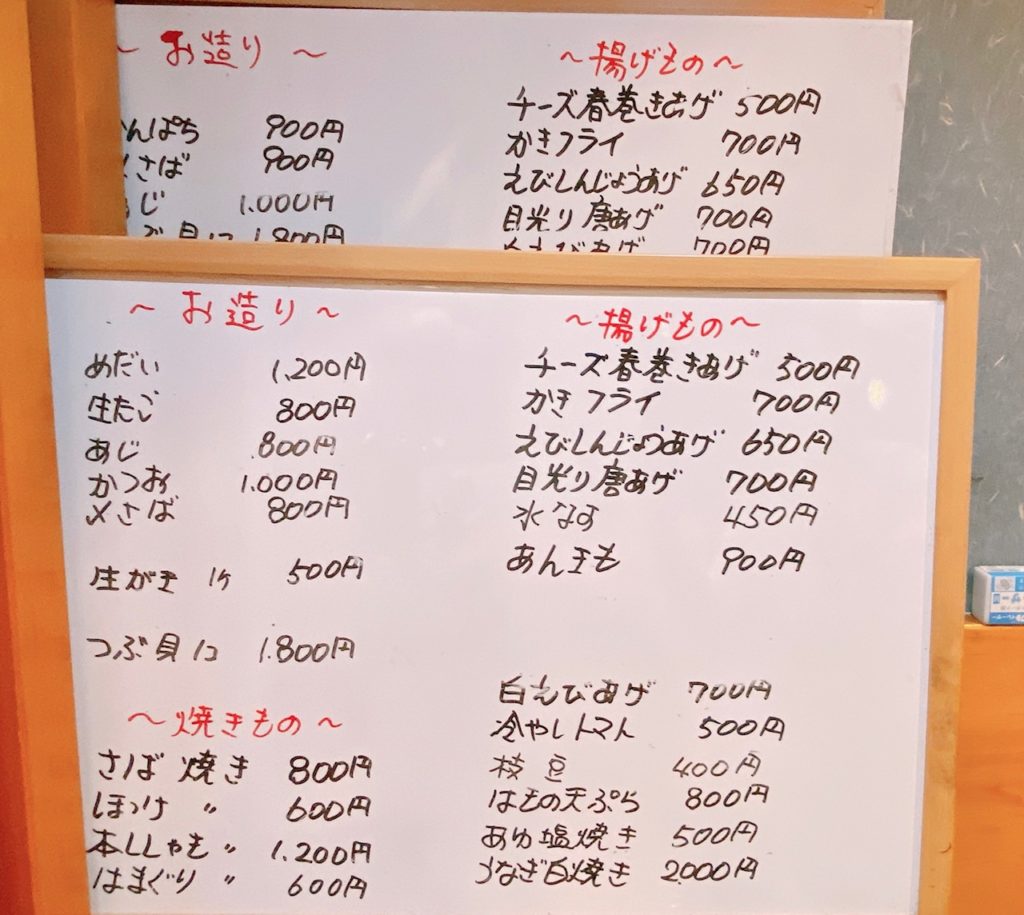 ～お造り～
んぱち 900円
〆さば 900円
じ 1.000円
ぶ貝1コ 1.800円
～揚げもの～
チーズ春巻きあげ 500円
かきフライ 700円
えびしんじょうあげ 650円
目光り唐あげ 700円
白えびあげ 700円
～お造り～
めだい 1.200円
生たこ 800円
あじ 800円
かつお 1.000円
〆さば 800円
生がき 1ケ 500円
つぶ貝1コ 1.800円
～焼きもの～
さば焼き 800円
ほっけ 〃 600円
本ししゃも〃 1.200円
はまぐり 〃 600円
～揚げもの～
チーズ春巻きあげ 500円
かきフライ 700円
えびしんじょうあげ 650円
目光り唐あげ 700円
水なす 450円
あんきも 900円
白えびあげ 700円
冷やしトマト 500円
枝豆 400円
はもの天ぷら 800円
あゆ塩焼き 500円
うなぎ白焼き 2000円